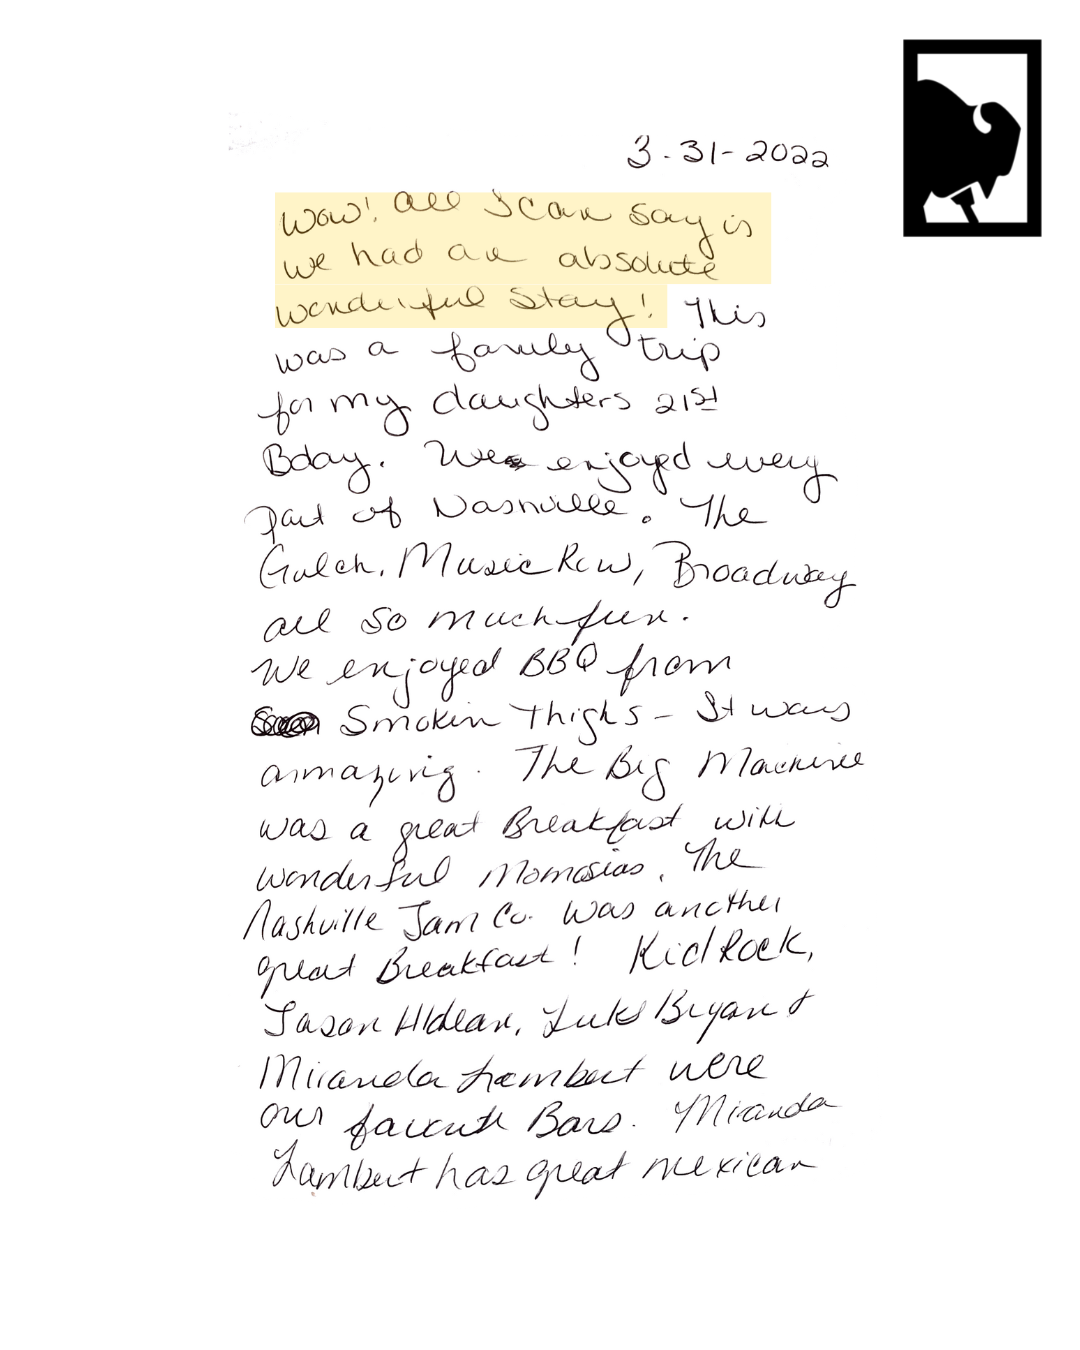 3-31-2022
Wow! All I can say is
we had an absolute
wonderful stay! This
was a family trip
for my daughters 21st
Bday. We enjoyed every
part of Nashville. The
Gulch, Music Row, Broadway
all so much fun.
We enjoyed BBQ from
Smokin Thighs - It was
ammazing. The Big Machine
was a great Breakfast with
wonderful Momosias. The
Nashville Jam Co. was another
great Breakfast! Kid Rock,
Jason Aldean, Luke Bryan &
Miranda Lambert were
our favorite Bars. Miranda
Lambert has great mexican